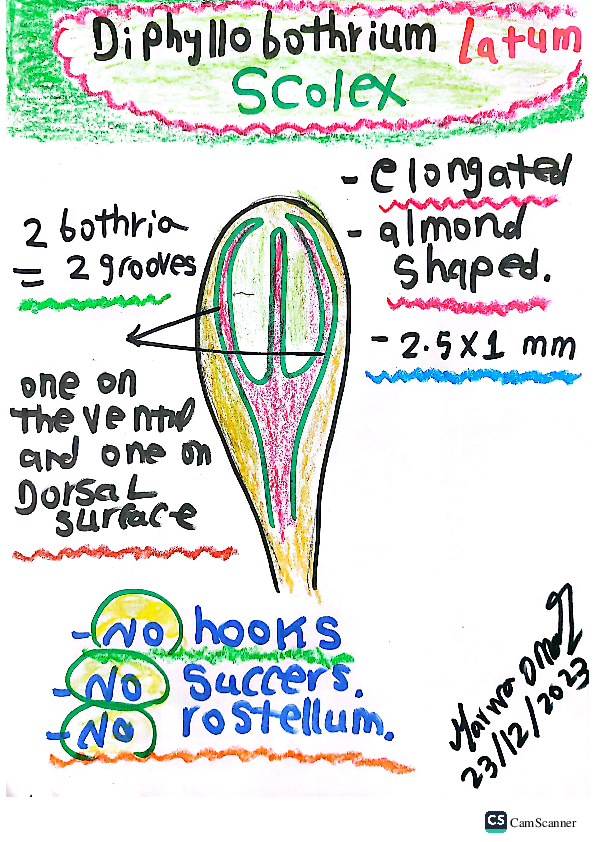 Diphyllobothrium Latum
Scolex
- elongated
- almond
shaped.
- 2.5X1 mm
2 bothria
= 2 grooves
one on
the ventral
and one on
Dorsal
surface
- No hooks
- No succers.
- No rostellum.
23/12/2023
CS CamScanner